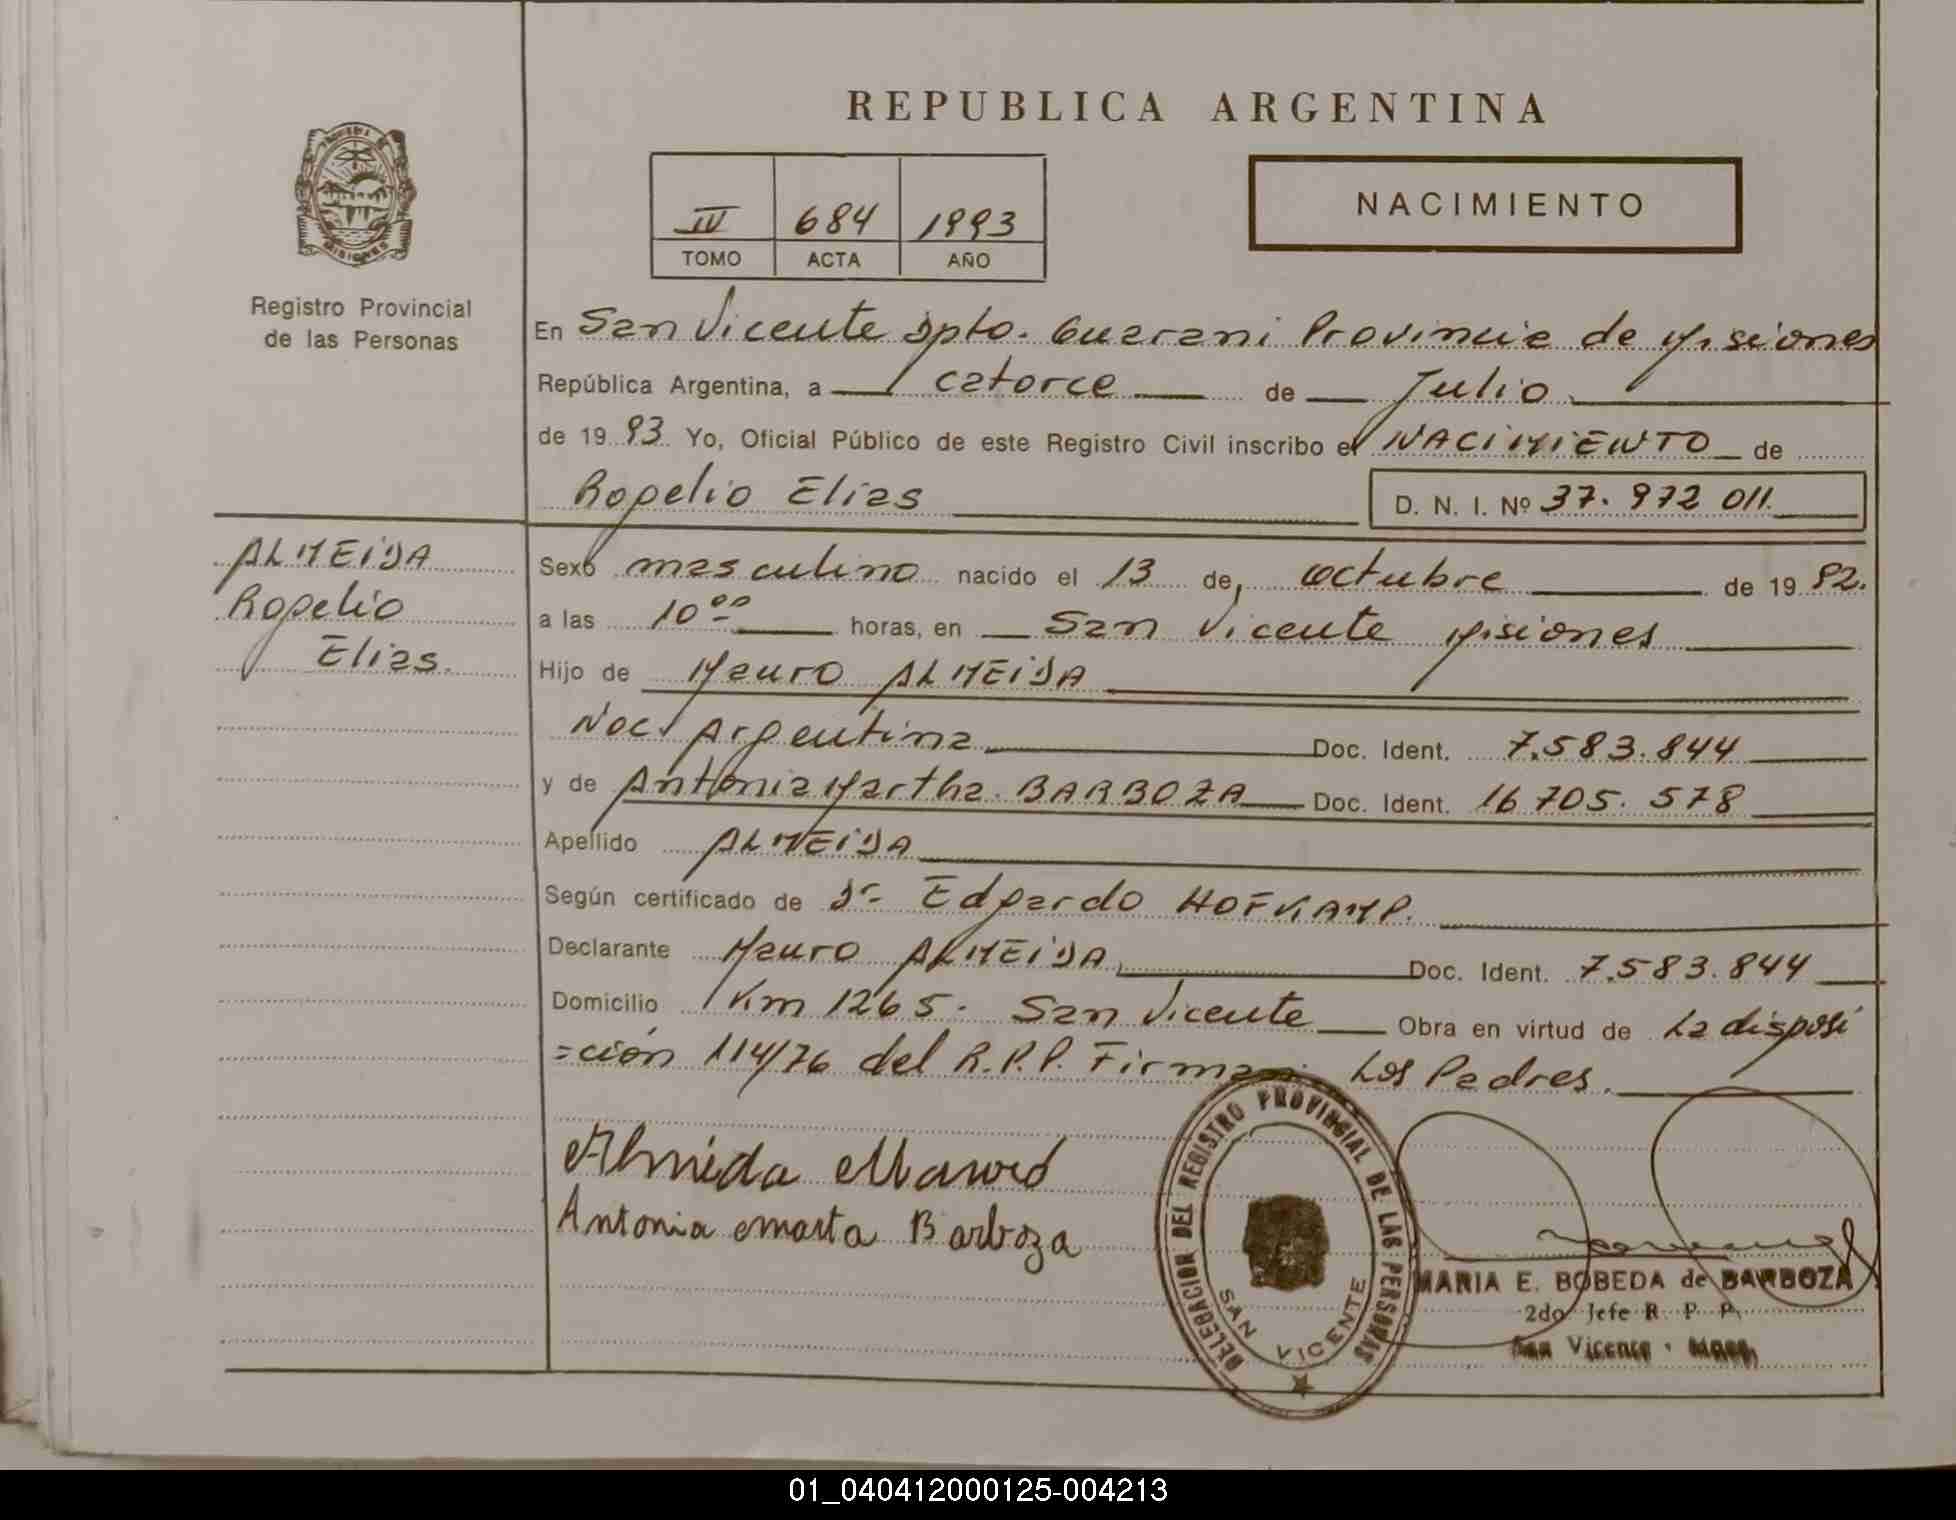 REPUBLICA ARGENTINA
NACIMIENTO
IV 684 1993
TOMO ACTA AÑO
MISIONES
Registro Provincial
de las Personas
En San Vicente Dpto. Guarani Provincia de Misiones
República Argentina, a catorce de Julio
de 19 93 Yo, Oficial Público de este Registro Civil inscribo el NACIMIENTO de
Rogelio Elias D. N. I. Nº 37.972 011.
ALMEIDA
Rogelio
Elias.
Sexo masculino nacido el 13 de octubre de 19 92.
a las 10 00 horas, en San Vicente Misiones
Hijo de Mauro ALMEIDA
Nac. Argentina Doc. Ident. 7.583.844
y de Antonia Martha BARBOZA Doc. Ident. 16 705. 578
Apellido ALMEIDA
Según certificado de Dr Edgardo HOFKAMP.
Declarante Mauro ALMEIDA Doc. Ident. 7.583.844
Domicilio Km 1265. San Vicente Obra en virtud de La disposi
=ción 114/76 del R.P.P. Firman: Los Padres.
Almeida Mauro
Antonia Marta Barboza
DELEGACION DEL REGISTRO PROVINCIAL DE LAS PERSONAS
SAN VICENTE
MARIA E. BOBEDA de BARBOZA
2do Jefe R. P. P.
San Vicente - Mnes.
01_040412000125-004213